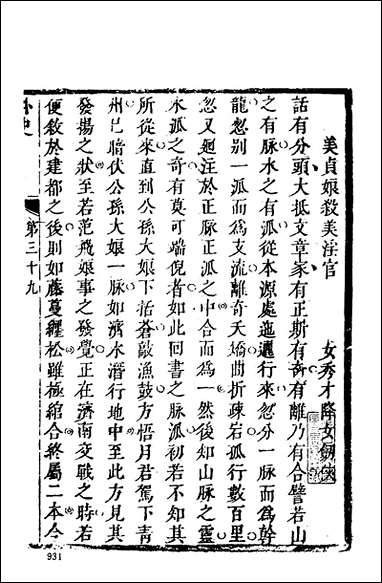 美貞娘殺美淫官　女秀才降女劍俠
話有分頭大抵文章家有正斯有奇有離乃有合譬若山
之有脉水之有派從本源處迤邐行來忽分一脉而爲幹
龍忽別一派而爲支流離奇夭矯曲折疎宕孤行數百里
忽又廻注於正脉正派之中合而爲一然後知山脉之靈
水派之奇有莫可端倪者如此回書之脉派初若不知其
所從來直到公孫大娘下指蒼敲漁鼓方悟月君駕下青
州已暗伏公孫大娘一脉如濟水潛行地中至此方見其
發揚之狀至若范飛娘事之發覺正在濟南交戰之時若
便敘於建都之後則如藤蔓纒松雖極綰合終屬二本今
外史
第三十九
931